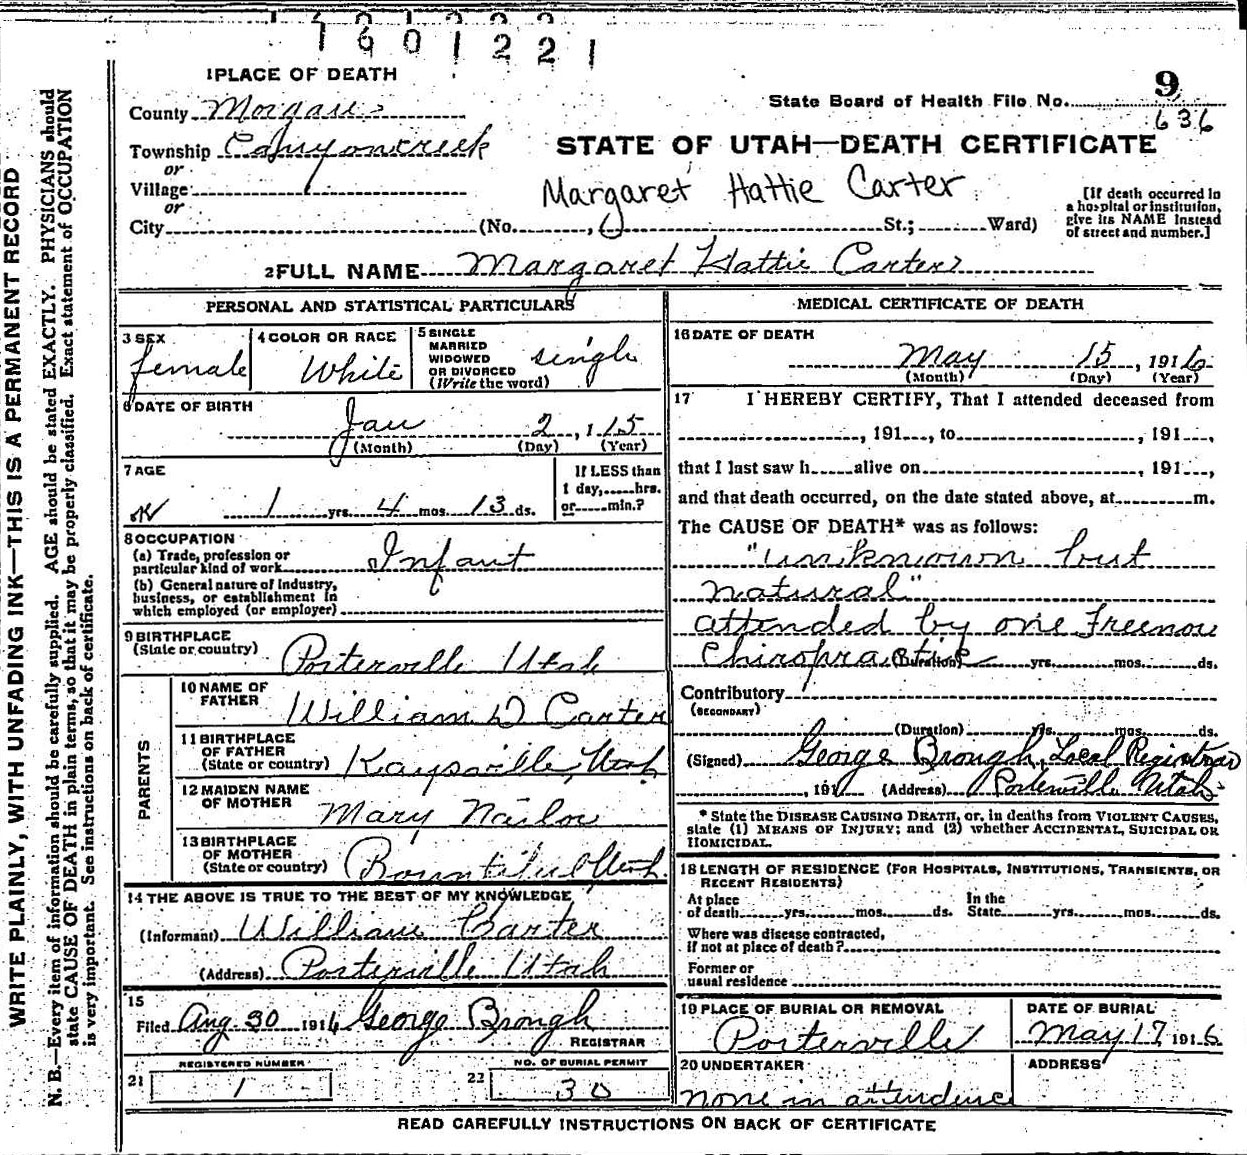 1601221
1 PLACE OF DEATH
9
State Board of Health File No. 636
County Morgan
Township Canyoncreek
STATE OF UTAH—DEATH CERTIFICATE
or
Village
Margaret Hattie Carter
[If death occurred in a hospital or institution, give its NAME instead of street and number.]
or
City (No. , St.; Ward)
2 FULL NAME Margaret Hattie Carter
PERSONAL AND STATISTICAL PARTICULARS
3 SEX
female
4 COLOR OR RACE
White
5 SINGLE
MARRIED
WIDOWED
OR DIVORCED
(Write the word)
single
6 DATE OF BIRTH
Jan 2, 1 15
(Month) (Day) (Year)
7 AGE
1 yrs. 4 mos. 13 ds.
If LESS than
1 day, hrs.
or min.?
8 OCCUPATION
(a) Trade, profession or
particular kind of work Infant
(b) General nature of Industry,
business, or establishment in
which employed (or employer)
9 BIRTHPLACE
(State or country) Porterville Utah
PARENTS
10 NAME OF
FATHER William D Carter
11 BIRTHPLACE
OF FATHER
(State or country) Kaysville, Utah
12 MAIDEN NAME
OF MOTHER Mary Nailor
13 BIRTHPLACE
OF MOTHER
(State or country) Bountiful Utah.
14 THE ABOVE IS TRUE TO THE BEST OF MY KNOWLEDGE
(Informant) William Carter
(Address) Porterville Utah
15
Filed Aug. 30 1916 George Brough
REGISTRAR
REGISTERED NUMBER
21 1
NO. OF BURIAL PERMIT
22 30
MEDICAL CERTIFICATE OF DEATH
16 DATE OF DEATH
May 15, 1916
(Month) (Day) (Year)
17 I HEREBY CERTIFY, That I attended deceased from
, 191 , to , 191 ,
that I last saw h alive on , 191 ,
and that death occurred, on the date stated above, at m.
The CAUSE OF DEATH* was as follows:
"unknown but
natural"
attended by one Freenou
Chiropractic (Duration) yrs. mos. ds.
Contributory
(SECONDARY)
(Duration) yrs. mos. ds.
(Signed) George Brough, Local Registrar
, 191 (Address) Porterville Utah
* State the DISEASE CAUSING DEATH, or, in deaths from VIOLENT CAUSES,
state (1) MEANS OF INJURY; and (2) whether ACCIDENTAL, SUICIDAL OR
HOMICIDAL.
18 LENGTH OF RESIDENCE (FOR HOSPITALS, INSTITUTIONS, TRANSIENTS, OR
RECENT RESIDENTS)
At place
of death yrs. mos. ds.
In the
State yrs. mos. ds.
Where was disease contracted,
if not at place of death?
Former or
usual residence
19 PLACE OF BURIAL OR REMOVAL
Porterville
DATE OF BURIAL
May 17 1916
20 UNDERTAKER
none in attendence
ADDRESS
READ CAREFULLY INSTRUCTIONS ON BACK OF CERTIFICATE
WRITE PLAINLY, WITH UNFADING INK—THIS IS A PERMANENT RECORD
N. B.—Every item of information should be carefully supplied. AGE should be stated EXACTLY. PHYSICIANS should
state CAUSE OF DEATH in plain terms, so that it may be properly classified. Exact statement of OCCUPATION
is very important. See instructions on back of certificate.